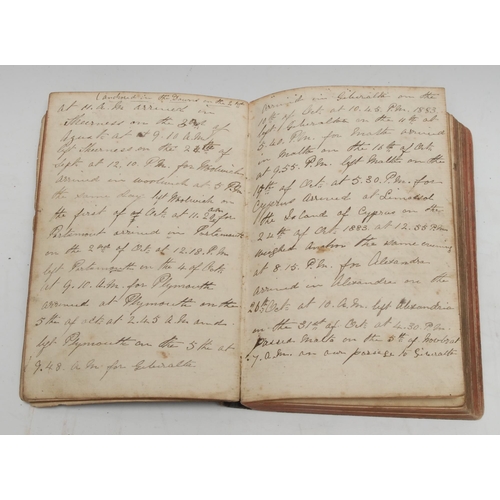 anchored in the Downs on the
at 11. A.M arrived in
Sheerness on the 3rd of
August at 9.10 A.M
left Sheerness on the 28th of
Sept at 12.10 P.M. for Woolwich
arrived in woolwich at 5 P.M.
the same day left Woolwich on
the first of Oct at 11.20 am for
Portsmout arrived in Portsmouth
on the 2nd of Oct at 12.18. P.M
left Portsmouth on the 4 of Oct
at 9.10. A.M. for Plymouth
arrived at Plymouth on the
5th of oct at 2.45 A.M and
left Plymouth on the 5th at
9.48. A.M for Gibralta
arrived in Gibralta on the
10th of Oct at 10.45. P.M. 1883
left Gibraltar on the 11th at
5.40. P.M. for Malta arrived
in Malta on the 16th of Oct
at 9.55. P.M. left Malta on the
19th of Oct. at 5.30. P.M. for
Cyprus arrived at Limesol
the Island of Cyprus on the
24th of Oct 1883 at 12.55 P.M
weighed anchor the same evening
at 8.15. P.M. for Alexandra
arrived in Alexandra on the
26th Oct at 10. A.M. left Alexandria
on the 31st of Oct at 4.30. P.M.
passed Malta on the 5th of
7. A.M. on our passage to Gibralta